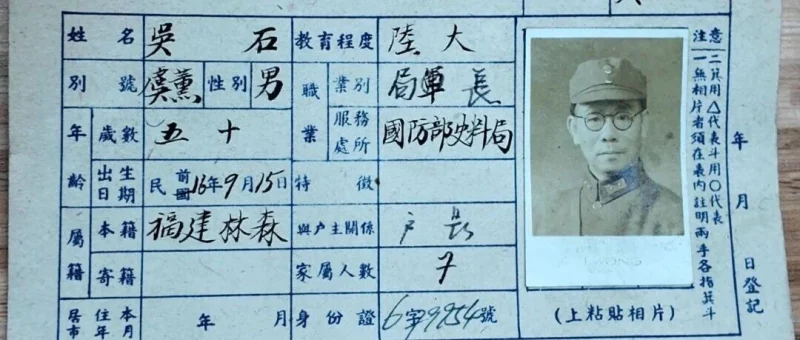 姓名 吳石 教育程度 陸大
別號 虞薰 性別 男 職業 業別 軍
年齡 歲數 五十 服務處所 國防部史料局 局長
出生日期 民前國16年9月15日 特徵
屬籍 本籍 福建林森 與户主關係 户長
寄籍 家屬人數 7
居住本市年月 年 月 身份證 6字9254號
注意
一無相片者須在表內註明兩手各指箕斗
二箕用△代表斗用○代表
年 月 日登記
(上粘貼相片)